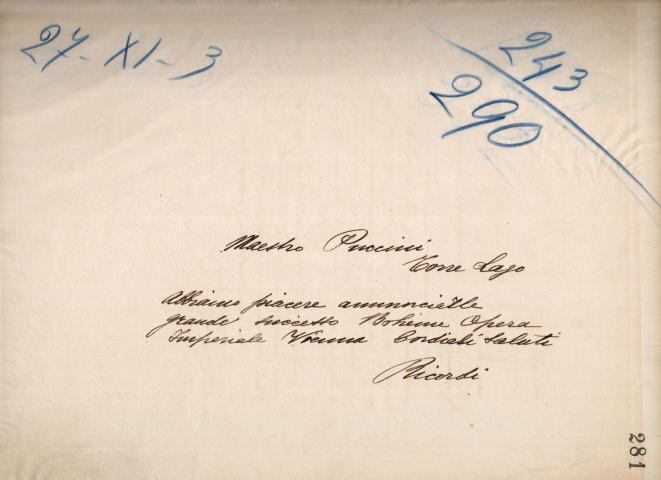 27-XI-3
243
290
Maestro Puccini
Torre Lago
Abbiamo piacere annunciarle
grande successo Bohème Opera
Imperiale Vienna Cordiali saluti
Ricordi
281